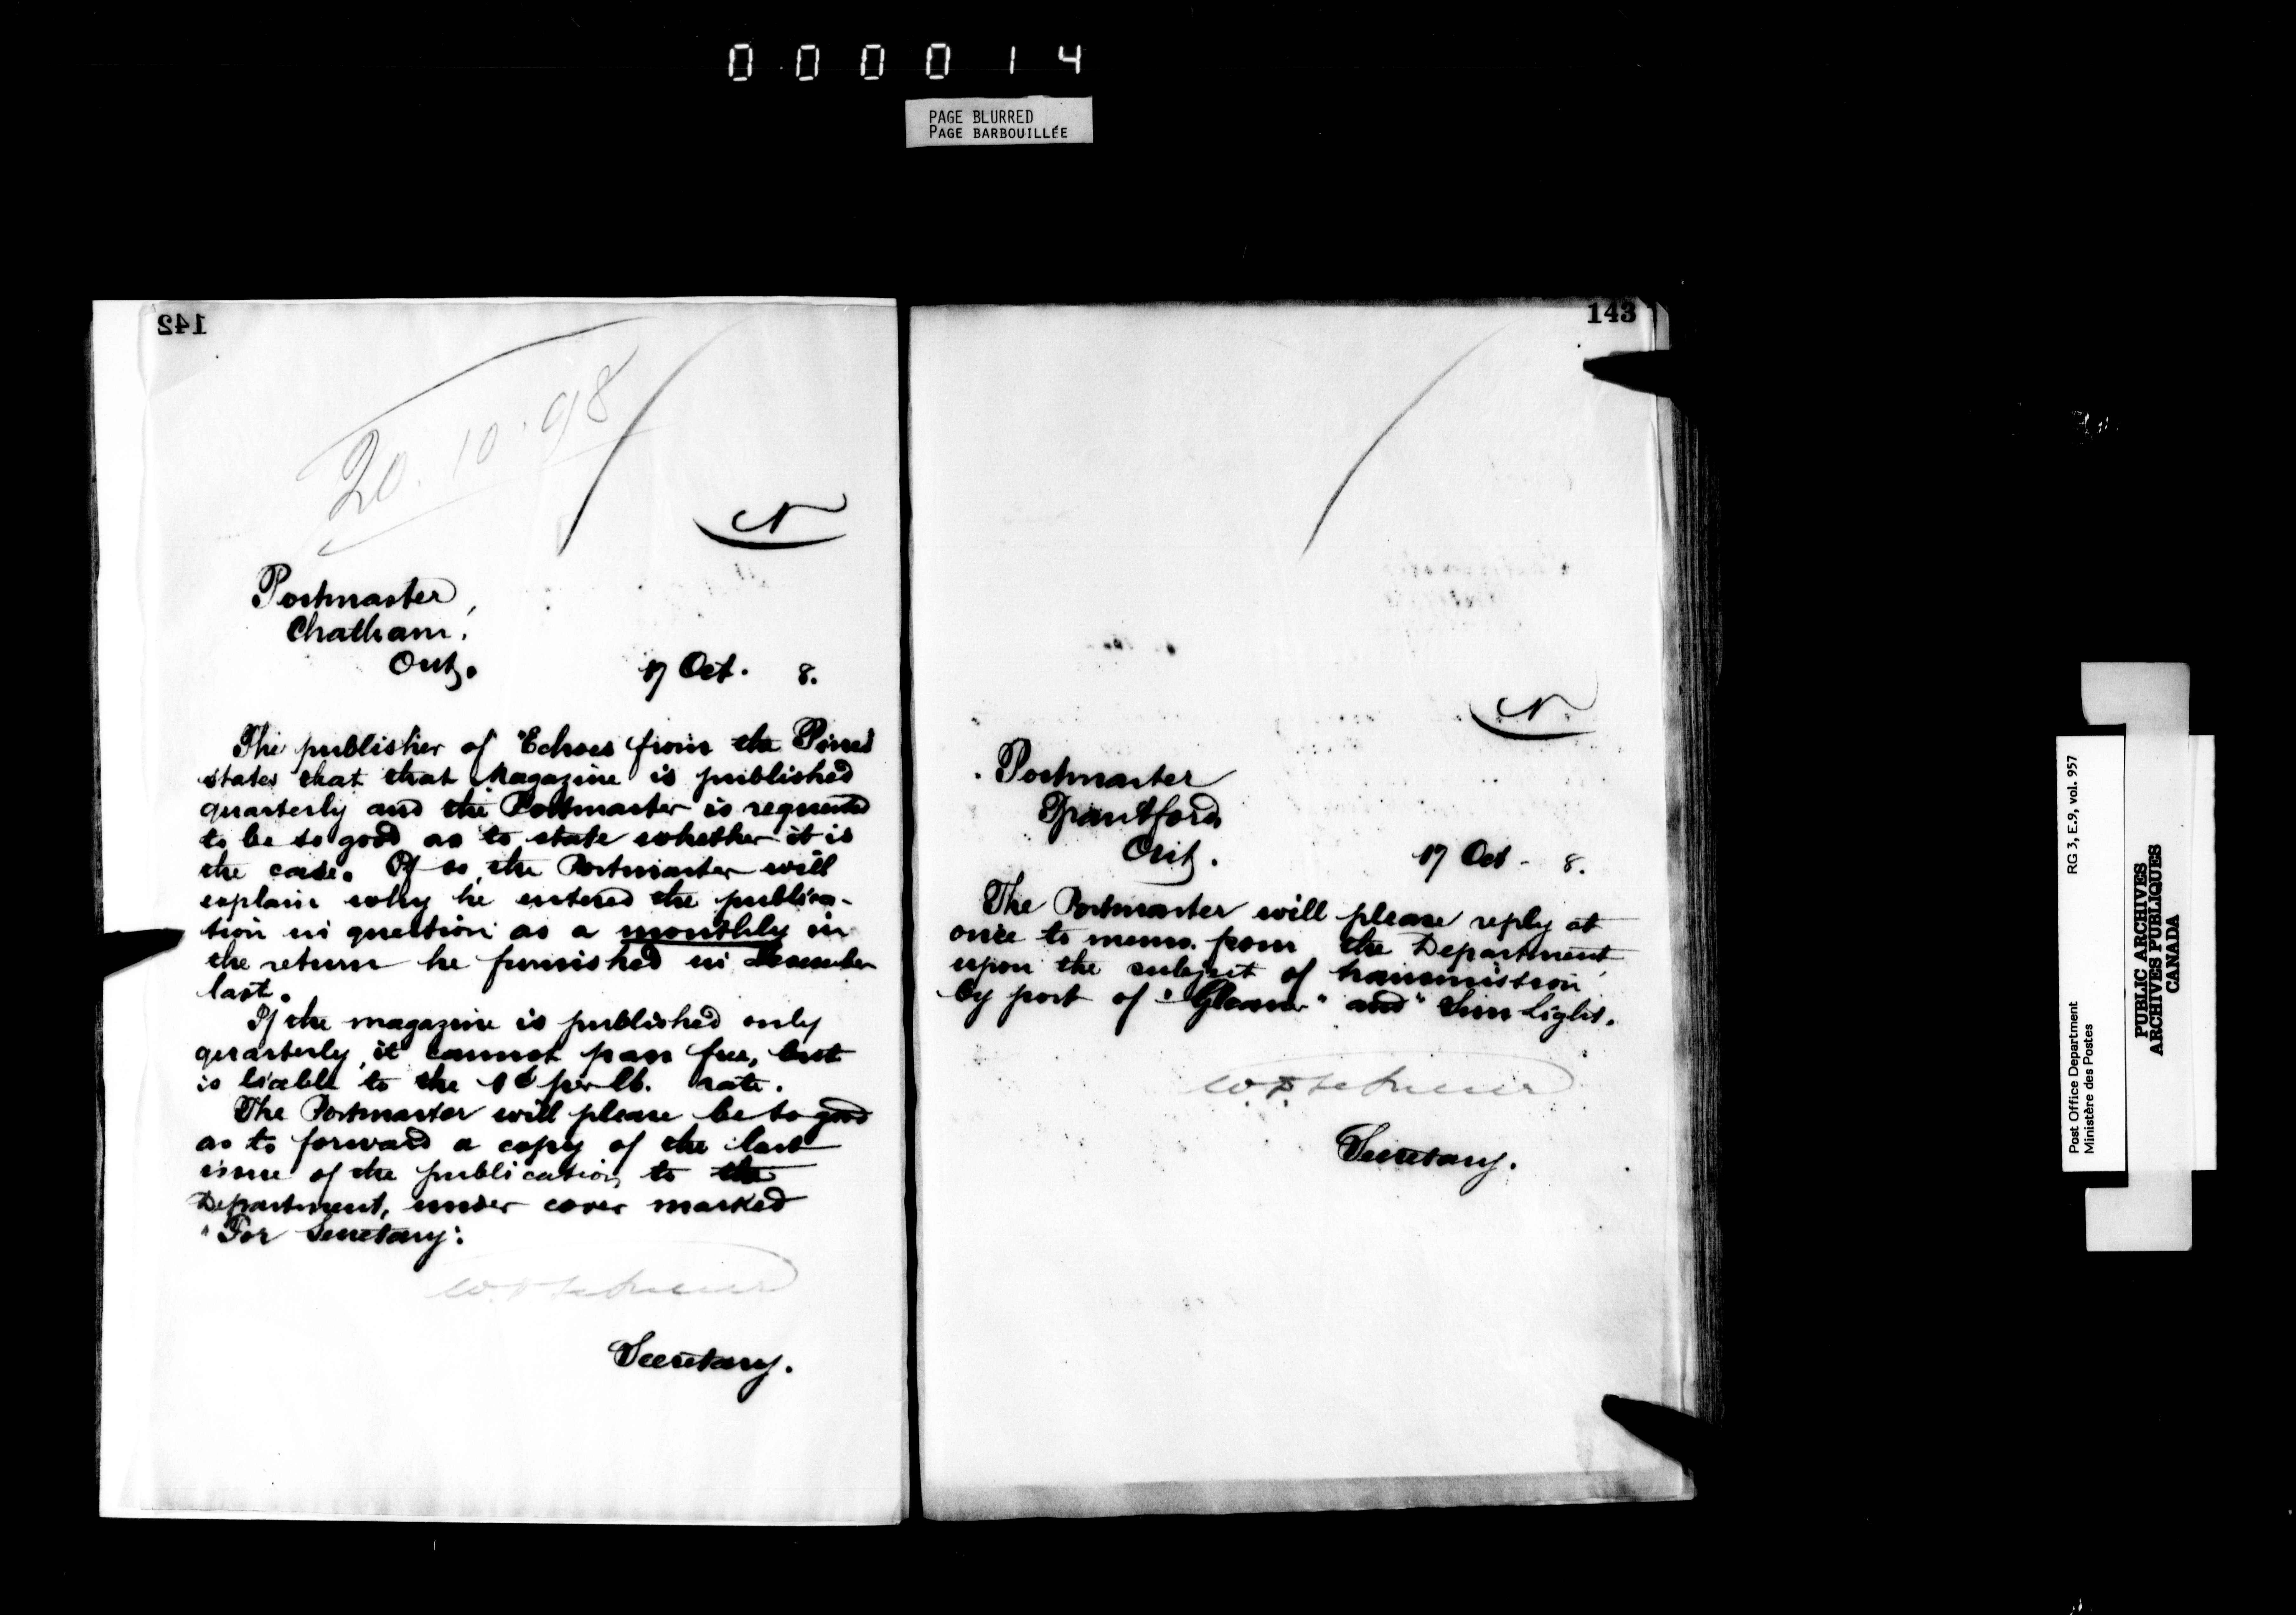 0 0 0 0 1 4
PAGE BLURRED
PAGE BARBOUILLÉE
142
20.10.98
N
Postmaster,
Chatham,
Ont.
17 Oct. 8.
The publisher of "Echoes from the Pines"
states that that Magazine is published
quarterly and the Postmaster is requested
to be so good as to state whether it is
the case. If so, the Postmaster will
explain why he entered the publica-
tion in question as a monthly in
the return he furnished in December
last.
If the magazine is published only
quarterly, it cannot pass free, but
is liable to the 1¢ per lb. rate.
The Postmaster will please be so good
as to forward a copy of the last
issue of the publication to the
Department, under cover marked
"For Secretary".
Secretary.
143
N
Postmaster
Brantford
Ont.
17 Oct - 8.
The Postmaster will please reply at
once to memo. from the Department
upon the subject of transmission
by post of "Gleaner" and "Sun Light.
Secretary.
Post Office Department
Ministère des Postes
RG 3, E.9, vol. 957
PUBLIC ARCHIVES
ARCHIVES PUBLIQUES
CANADA